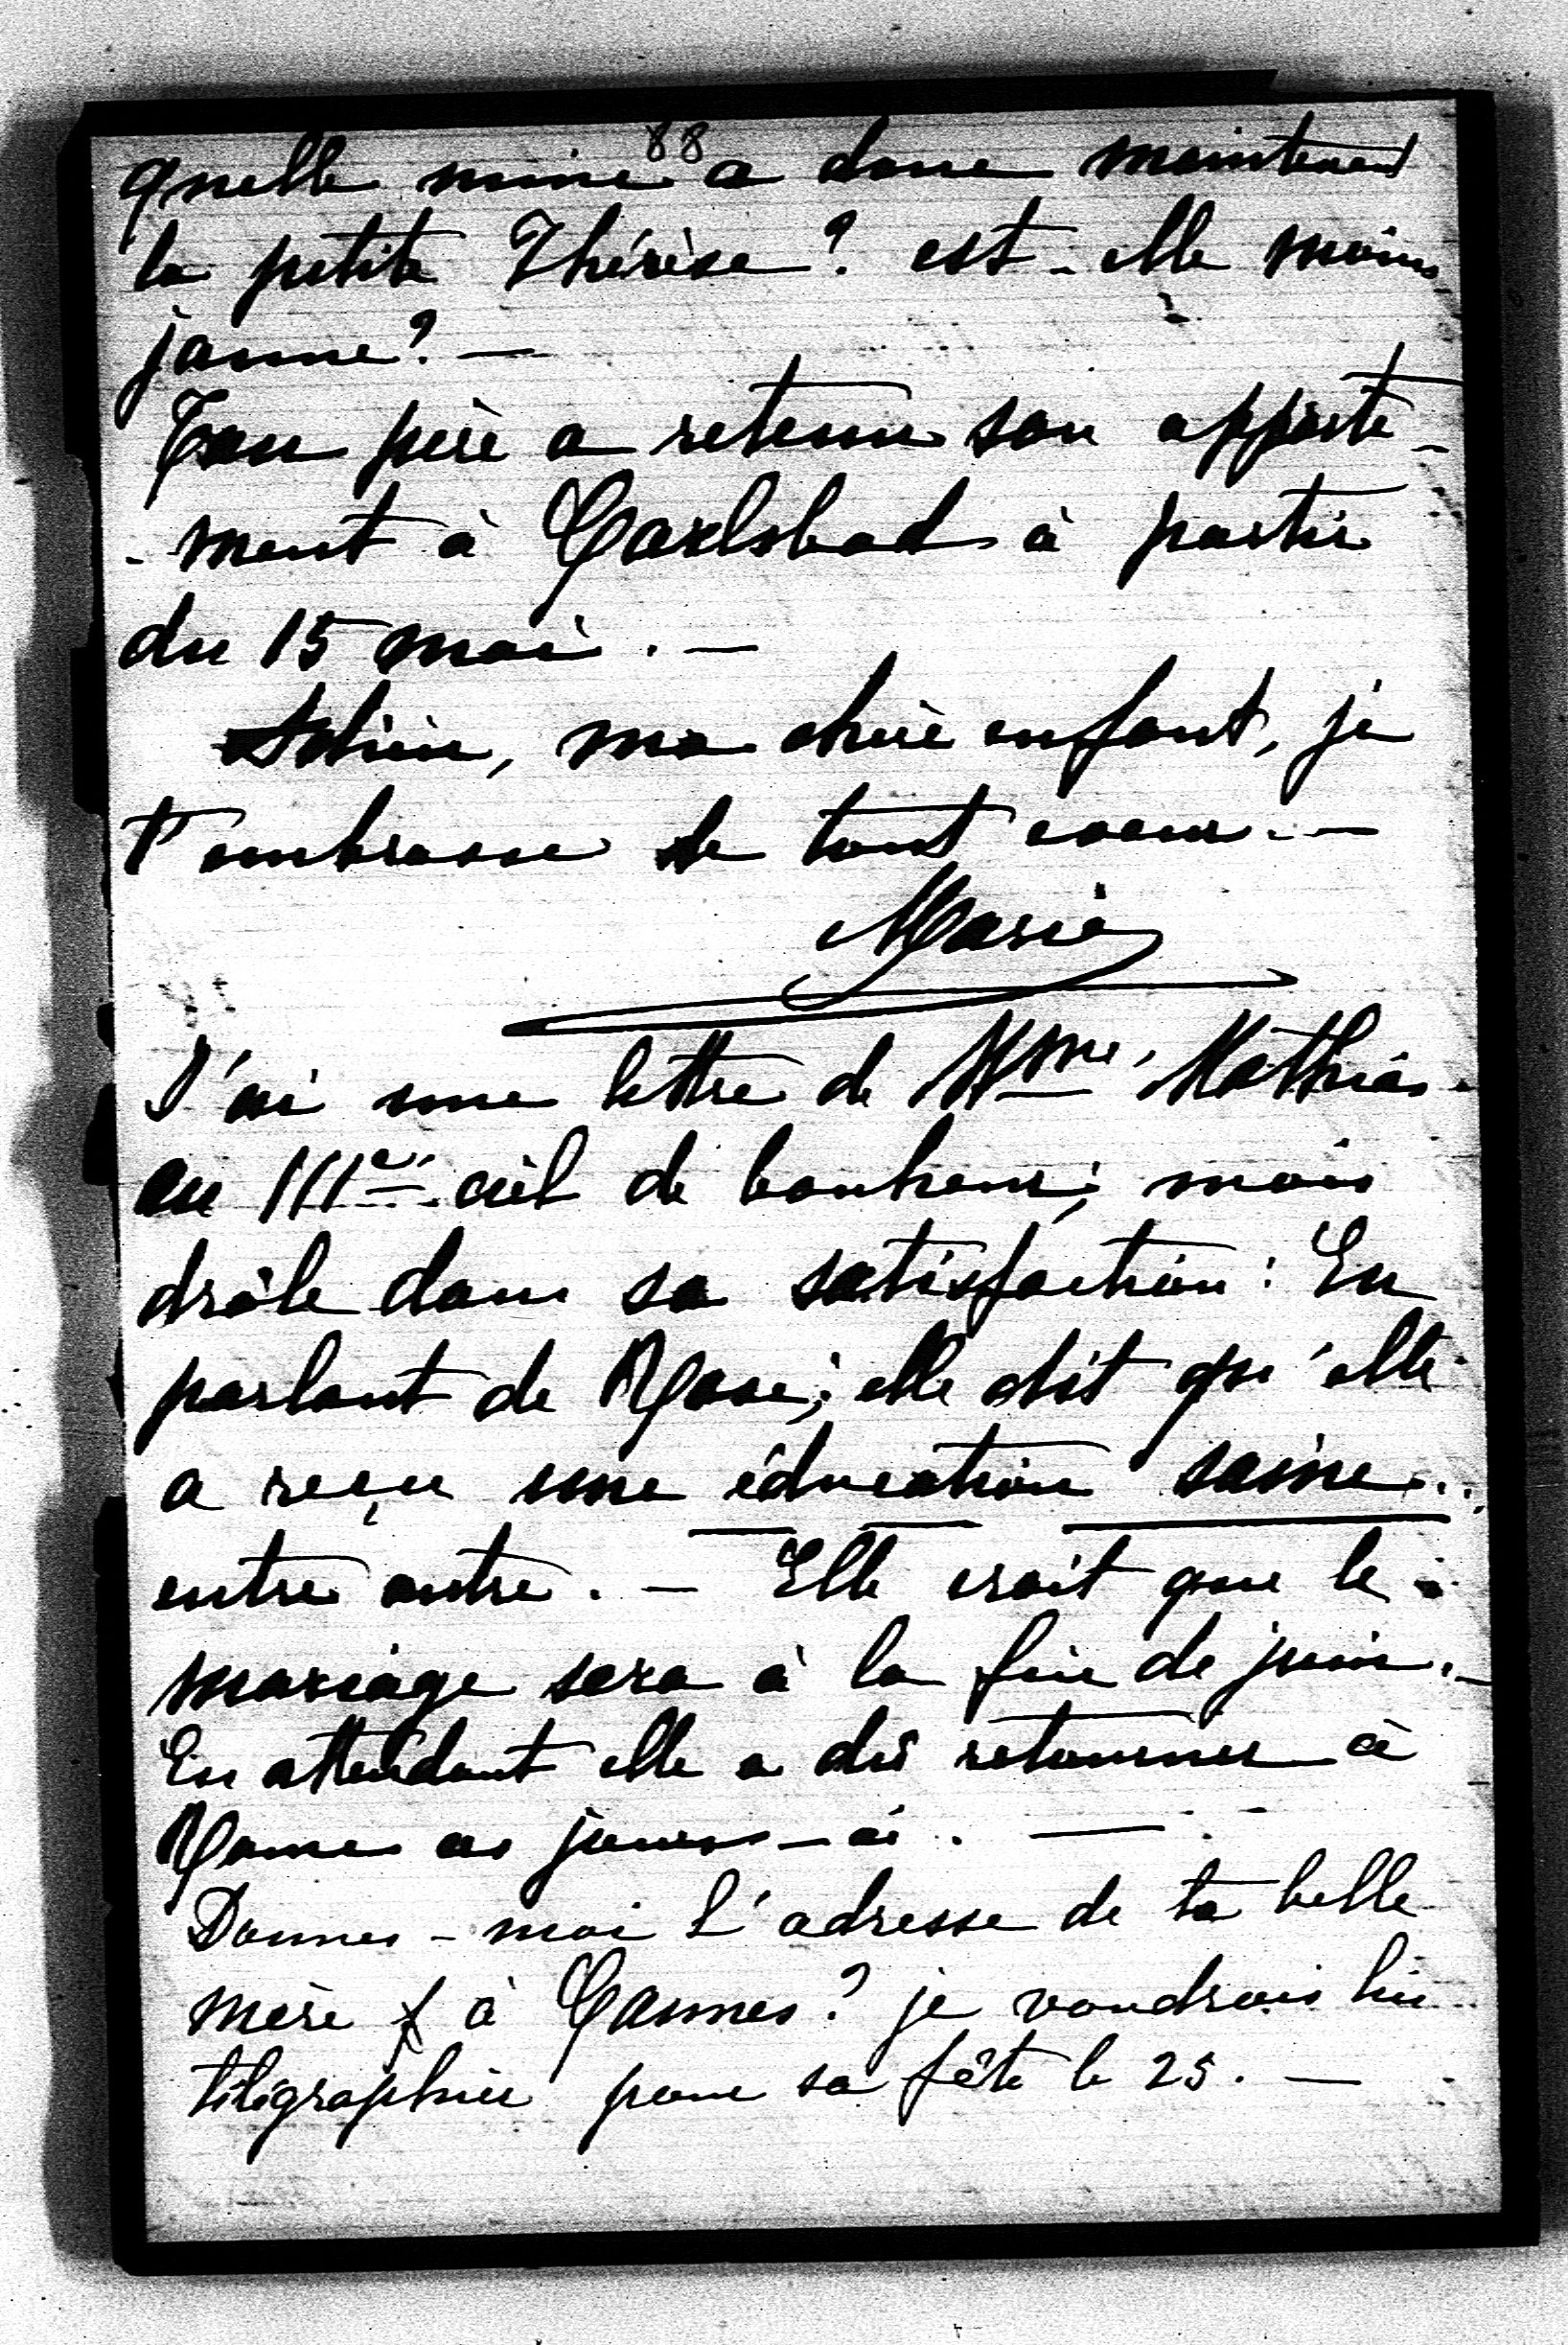 88
quelle mine a donc maintenant
la petite Thérèse? est-elle moins
jaune? —
Ton père a retenu son apparte-
-ment à Carlsbad à partir
du 15 mai. —
Adieu, ma chère enfant, je
t'embrasse de tout coeur. —
Marie
J'ai une lettre de Mme. Mathias
au IIIe. ciel de bonheur; mais
drôle dans sa satisfaction: En
parlant de Rose; elle dit qu'elle
a reçu une éducation saine..
entre autre. — Elle croit que le
mariage sera à la fin de juin. —
En attendant elle a dû retourner à
Rome ces jours-ci. —
Donnes-moi l'adresse de ta belle
mère à Cannes? je voudrais lui
télégraphier pour sa fête le 25. —